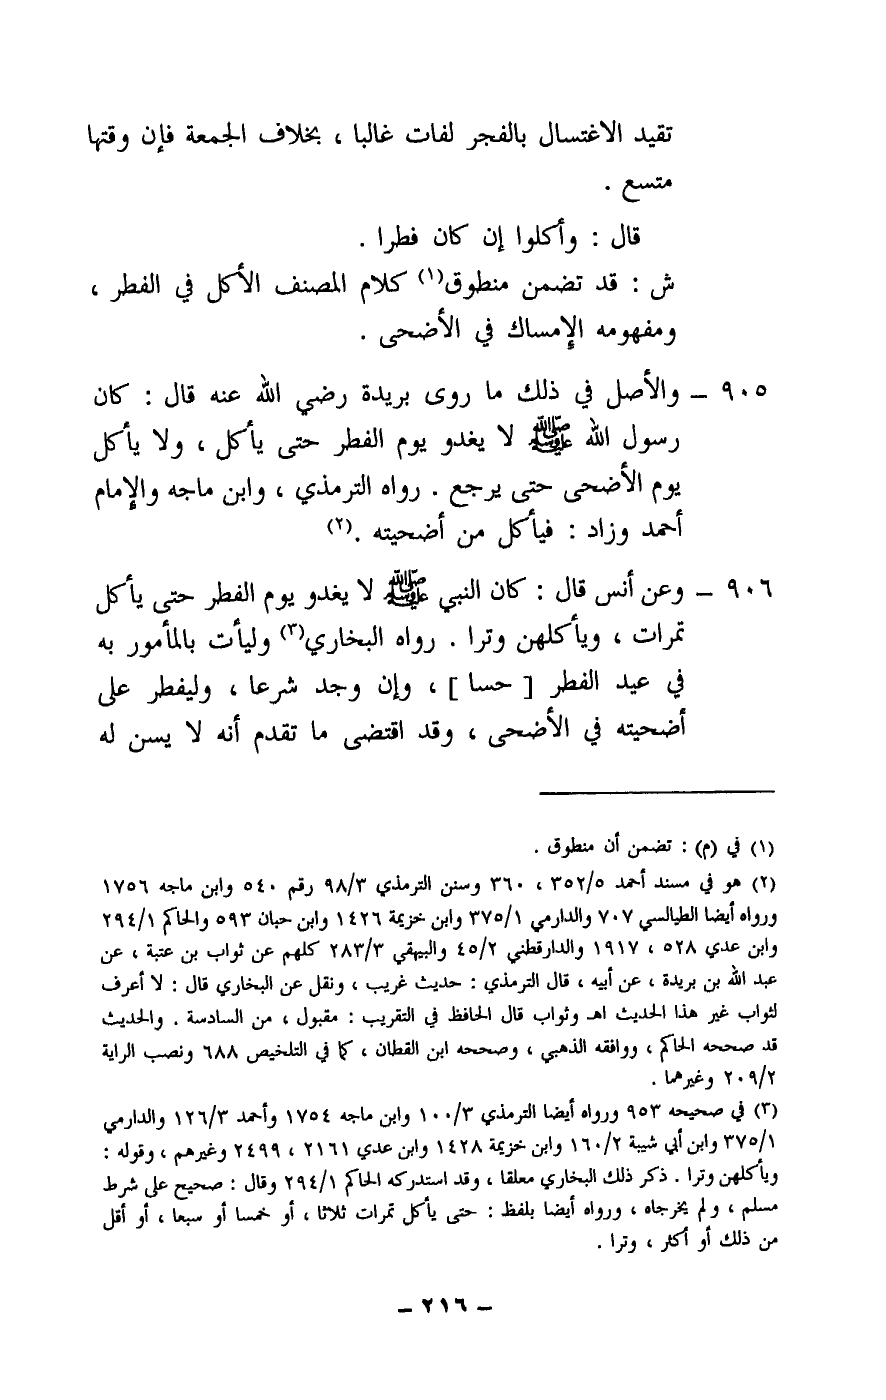 تقيد الاغتسال بالفجر لفات غالبا ، بخلاف الجمعة فإن وقتها
متسع .
قال : وأكلوا إن كان فطرا .
ش : قد تضمن منطوق(١) كلام المصنف الأكل في الفطر ،
ومفهومه الإمساك في الأضحى .
٩٠٥ – والأصل في ذلك ما روى بريدة رضي الله عنه قال : كان
رسول الله ﷺ لا يغدو يوم الفطر حتى يأكل ، ولا يأكل
يوم الأضحى حتى يرجع . رواه الترمذي ، وابن ماجه والإمام
أحمد وزاد : فيأكل من أضحيته .(٢)
٩٠٦ – وعن أنس قال : كان النبي ﷺ لا يغدو يوم الفطر حتى يأكل
تمرات ، ويأكلهن وترا . رواه البخاري(٣) وليأت بالمأمور به
في عيد الفطر [ حسا ] ، وإن وجد شرعا ، وليفطر على
أضحيته في الأضحى ، وقد اقتضى ما تقدم أنه لا يسن له
(١) في (م) : تضمن أن منطوق .
(٢) هو في مسند أحمد ٣٥٢/٥ ، ٣٦٠ وسنن الترمذي ٩٨/٣ رقم ٥٤٠ وابن ماجه ١٧٥٦
ورواه أيضا الطيالسي ٧٠٧ والدارمي ٣٧٥/١ وابن خزيمة ١٤٢٦ وابن حبان ٥٩٣ والحاكم ٢٩٤/١
وابن عدي ٥٢٨ ، ١٩١٧ والدارقطني ٤٥/٢ والبيهقي ٢٨٣/٣ كلهم عن ثواب بن عتبة ، عن
عبد الله بن بريدة ، عن أبيه ، قال الترمذي : حديث غريب ، ونقل عن البخاري قال : لا أعرف
لثواب غير هذا الحديث اهـ وثواب قال الحافظ في التقريب : مقبول ، من السادسة . والحديث
قد صححه الحاكم ، ووافقه الذهبي ، وصححه ابن القطان ، كما في التلخيص ٦٨٨ ونصب الراية
٢٠٩/٢ وغيرهما .
(٣) في صحيحه ٩٥٣ ورواه أيضا الترمذي ١٠٠/٣ وابن ماجه ١٧٥٤ وأحمد ١٢٦/٣ والدارمي
٣٧٥/١ وابن أبي شيبة ١٦٠/٢ وابن خزيمة ١٤٢٨ وابن عدي ٢١٦١ ، ٢٤٩٩ وغيرهم ، وقوله :
ويأكلهن وترا . ذكر ذلك البخاري معلقا ، وقد استدركه الحاكم ٢٩٤/١ وقال : صحيح على شرط
مسلم ، ولم يخرجاه ، ورواه أيضا بلفظ : حتى يأكل تمرات ثلاثا ، أو خمسا أو سبعا ، أو أقل
من ذلك أو أكثر ، وترا .
– ٢١٦ –